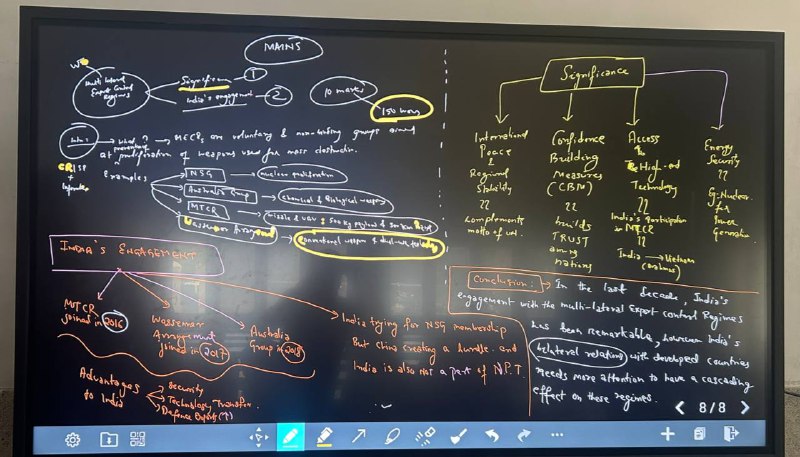 MAINS
Multi lateral
Export Control
Regimes
Significance 1
India's engagement 2
10 marks
150 words
Intro: what? MECRs are voluntary & non-binding groups aimed
at proliferation of weapons used for mass destruction.
CRISP
+
Examples
NSG nuclear proliferation
Australia Group Chemical & Biological weapons
MTCR Missile & UAV
Wassenaar Arrangement Conventional weapon & dual-use
INDIA'S ENGAGEMENT
MTCR
joined in 2016
Wassenaar
Arrangement
joined in 2017
Australia
Group in 2018
India trying for NSG membership
But China creating a hurdle. and
India is also NOT a part of N.P.T
Advantages
to India
Security
Technology Transfer
Defence Exports (↑)
Significance
International
Peace
&
Regional
Stability
Complements
motto of UN.
Confidence
Building
Measures
(CBM)
builds
TRUST
among
nations
Access
to
High-end
Technology
India's participation
in MTCR
India → Vietnam
(Brahmos)
Energy
Security
Eg: Nuclear
Generation
Conclusion: In the last decade, India's
engagement with the multi-lateral Export Control Regimes
has been remarkable, however India's
bilateral relations with developed countries
needs more attention to have a cascading
effect on these regimes.
8/8